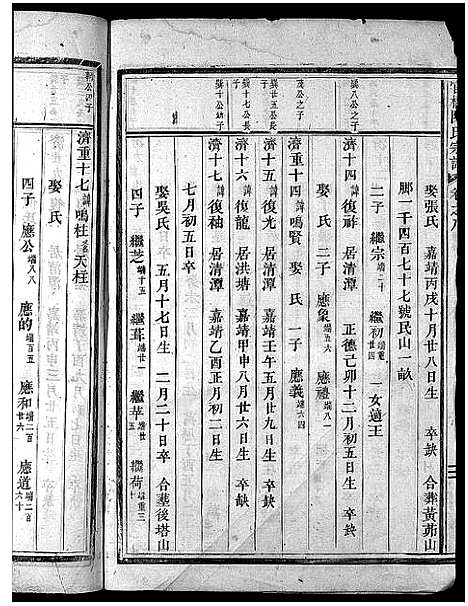 陳氏宗譜 卷之八
娶張氏 嘉靖丙戌十月廿八日生 卒缺 合葬黃茆山
脚一千四百七十七號民山一畝
二子 繼宗端二十 繼初端重廿四 一女適王
巽八公之子
濟十四諱復祥 居清潭 正德己卯十二月初五日生 卒缺
娶氏 二子 應象端五六 應禮端八一
茂公之子
濟重十四諱鳴賢 娶氏 一子 應義端六四
巽廿五公長子
濟十五諱復光 居清潭 嘉靖壬午五月廿九日生 卒缺
巽十七公長子
濟十六諱復龍 居洪塘 嘉靖甲申八月廿六日生 卒缺
巽十公幼子
濟十七諱復袖 居清潭 嘉靖乙酉正月初六日生
七月初五日卒
娶吳氏 五月十七日生 二月二十日卒 合葬後塔山
四子 繼芝端十五 繼葺端廿一 繼華端廿五 繼荷端重三十
公四子
濟重十七諱鳴柱又名天柱
娶氏
四子 應公端八八 應的端百五 應和端二百廿六 應道端二百六十